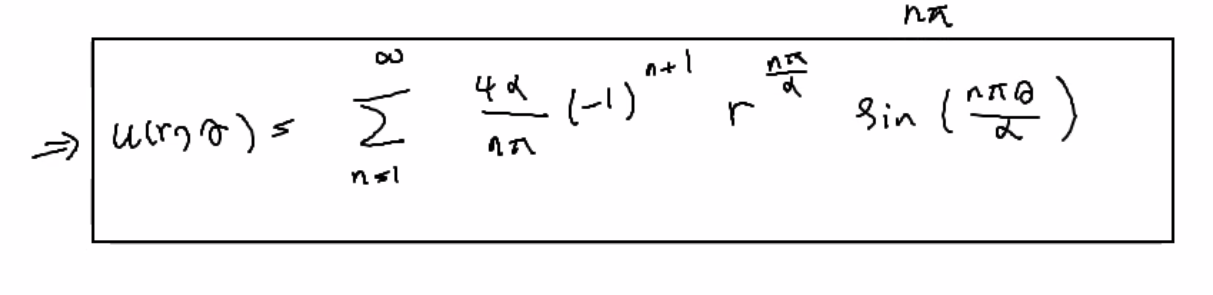 nπ
⇒ u(r,θ) = ∑_{n=1}^{∞} \frac{4α}{nπ} (-1)^{n+1} r^{\frac{nπ}{α}} sin(\frac{nπθ}{α})